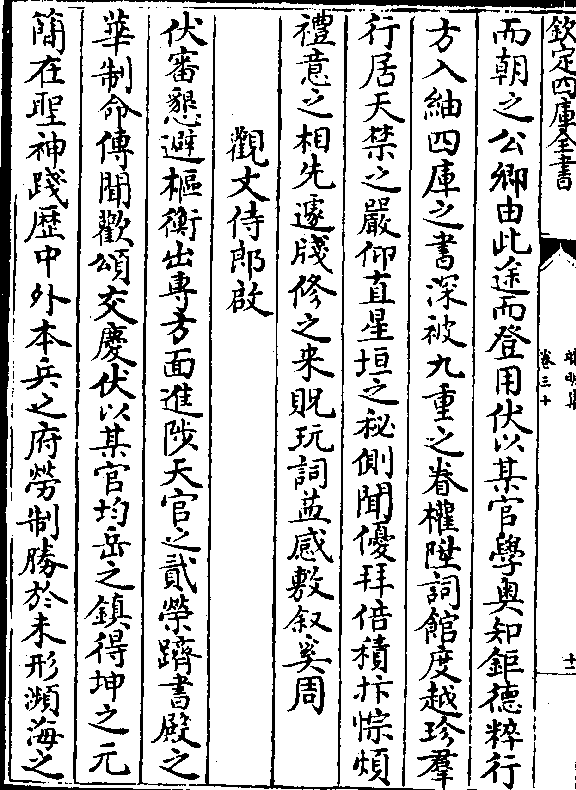 欽定四庫全書
端明集
卷三十
十二
而朝之公卿由此途而登用伏以某官學奥知鉅德粹行
方入紬四庫之書深被九重之眷權陞詞館度越珍羣
行居天禁之嚴仰直星垣之秘側聞優拜倍積抃悰煩
禮意之相先遽牋修之来貺玩詞益感敷叙奚周
觀文侍郎啟
伏審懇避樞衡出專方面進陟天官之貳榮躋書殿之
華制命傳聞歡頌交慶伏以某官均岳之鎮得坤之元
簡在聖神踐歴中外本兵之府勞制勝於未形瀕海之